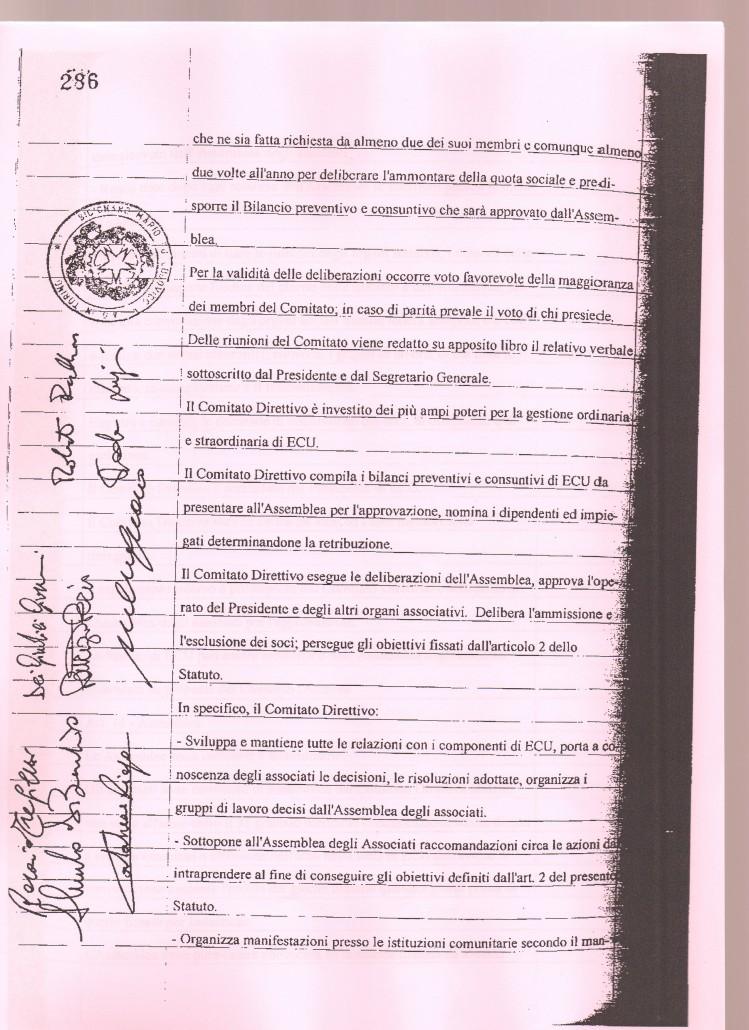 286
che ne sia fatta richiesta da almeno due dei suoi membri e comunque almeno
due volte all'anno per deliberare l'ammontare della quota sociale e predi-
sporre il Bilancio preventivo e consuntivo che sarà approvato dall'Assem-
blea.
Per la validità delle deliberazioni occorre voto favorevole della maggioranza
dei membri del Comitato; in caso di parità prevale il voto di chi presiede.
Delle riunioni del Comitato viene redatto su apposito libro il relativo verbale
sottoscritto dal Presidente e dal Segretario Generale.
Il Comitato Direttivo è investito dei più ampi poteri per la gestione ordinaria
e straordinaria di ECU.
Il Comitato Direttivo compila i bilanci preventivi e consuntivi di ECU da
presentare all'Assemblea per l'approvazione, nomina i dipendenti ed impie-
gati determinandone la retribuzione.
Il Comitato Direttivo esegue le deliberazioni dell'Assemblea, approva l'ope-
rato del Presidente e degli altri organi associativi. Delibera l'ammissione e
l'esclusione dei soci; persegue gli obiettivi fissati dall'articolo 2 dello
Statuto.
In specifico, il Comitato Direttivo:
- Sviluppa e mantiene tutte le relazioni con i componenti di ECU, porta a co-
noscenza degli associati le decisioni, le risoluzioni adottate, organizza i
gruppi di lavoro decisi dall'Assemblea degli associati.
- Sottopone all'Assemblea degli Associati raccomandazioni circa le azioni da
intraprendere al fine di conseguire gli obiettivi definiti dall'art. 2 del presente
Statuto.
- Organizza manifestazioni presso le istituzioni comunitarie secondo il man-
MARIO
TORINO
Roberto